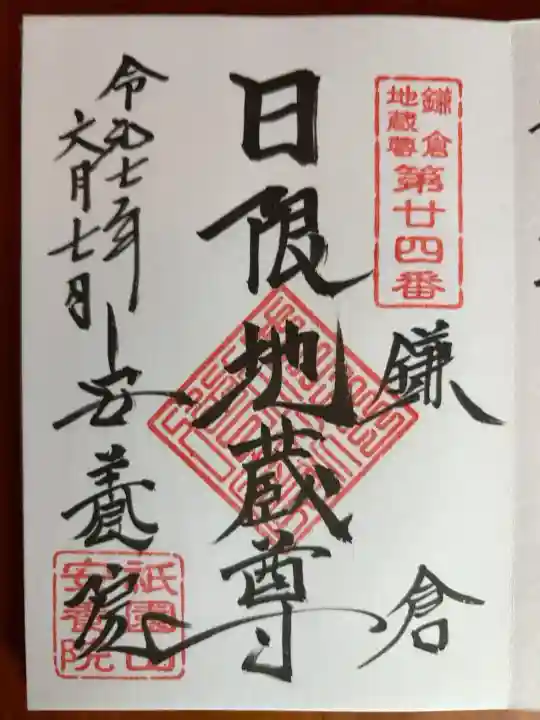 鎌倉
地蔵尊
第廿四番
鎌倉
日限地蔵尊
令和七年
六月七日
安養院
祇園山
安養院